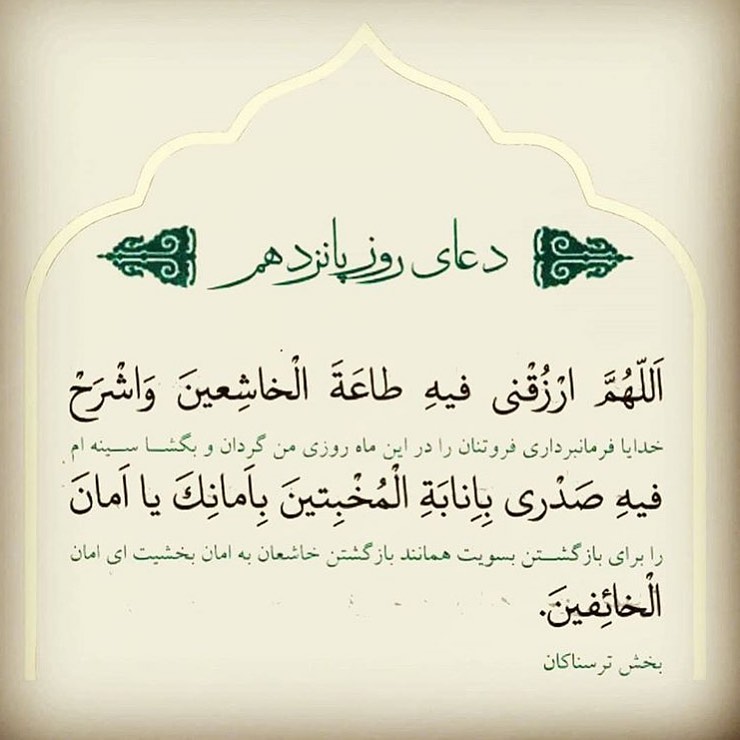 دعای روز پانزدهم
اَللّهُمَّ ارْزُقْنی فیهِ طاعَةَ الْخاشِعینَ وَاشْرَحْ
خدایا فرمانبرداری فروتنان را در این ماه روزی من گردان و بگشا سینه ام
فیهِ صَدْری بِاِنابَةِ الْمُخْبِتینَ بِاَمانِكَ یا اَمانَ
را برای بازگشتن بسویت همانند بازگشتن خاشعان به امان بخشیت ای امان
الْخائِفینَ.
بخش ترسناکان